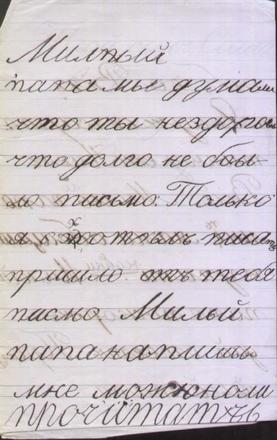 Милпый
папа мы думали
что ты нездоров
что долго не бы-
ло письмо. Только
я хотълъ писа
пришло отъ тебя
писмо Милый
папа напишы
мне можюноли
прочитатъ